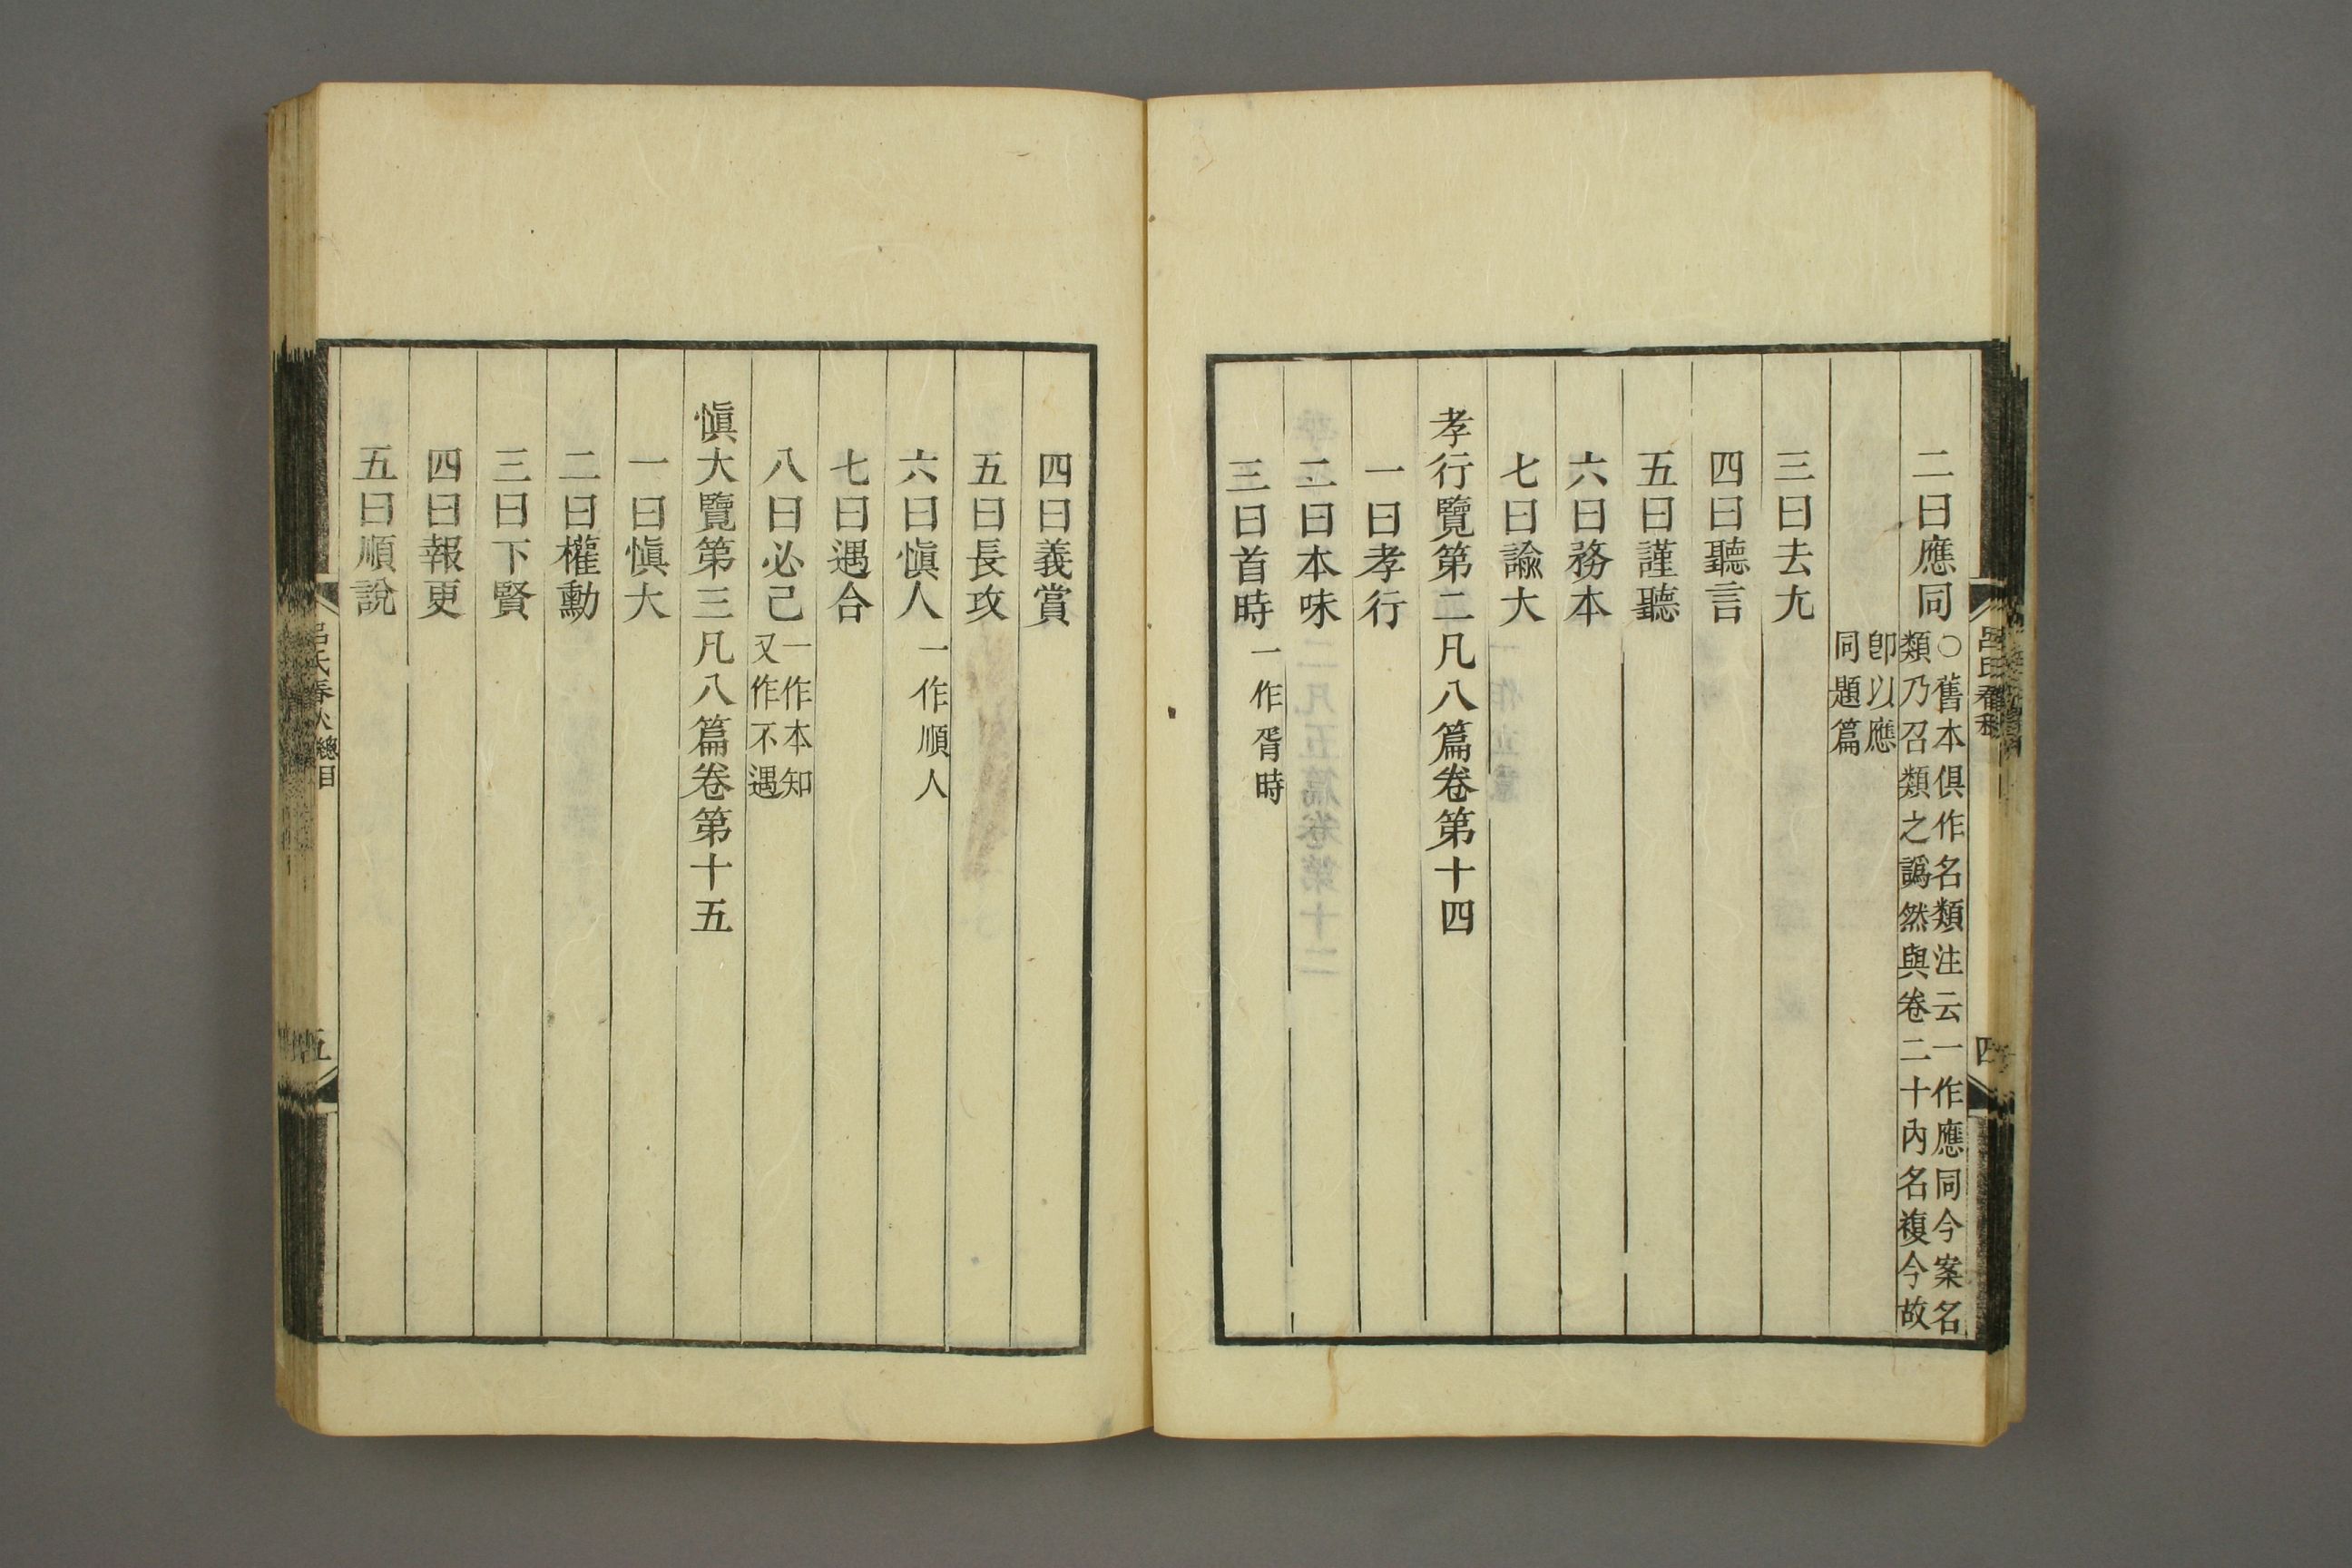 二曰應同○舊本俱作名類注云一作應同今案名
類乃召類之譌然與卷二十內名複今故
卽以應
同題篇
三曰去尤
四曰聽言
五曰謹聽
六曰務本
七曰諭大
孝行覽第二凡八篇卷第十四
一曰孝行
二曰本味
三曰首時一作胥時
四曰義賞
五曰長攻
六曰愼人一作順人
七曰遇合
八曰必己一作本知
又作不遇
愼大覽第三凡八篇卷第十五
一曰愼大
二曰權勳
三曰下賢
四曰報更
五曰順說
呂氏春秋總目
五